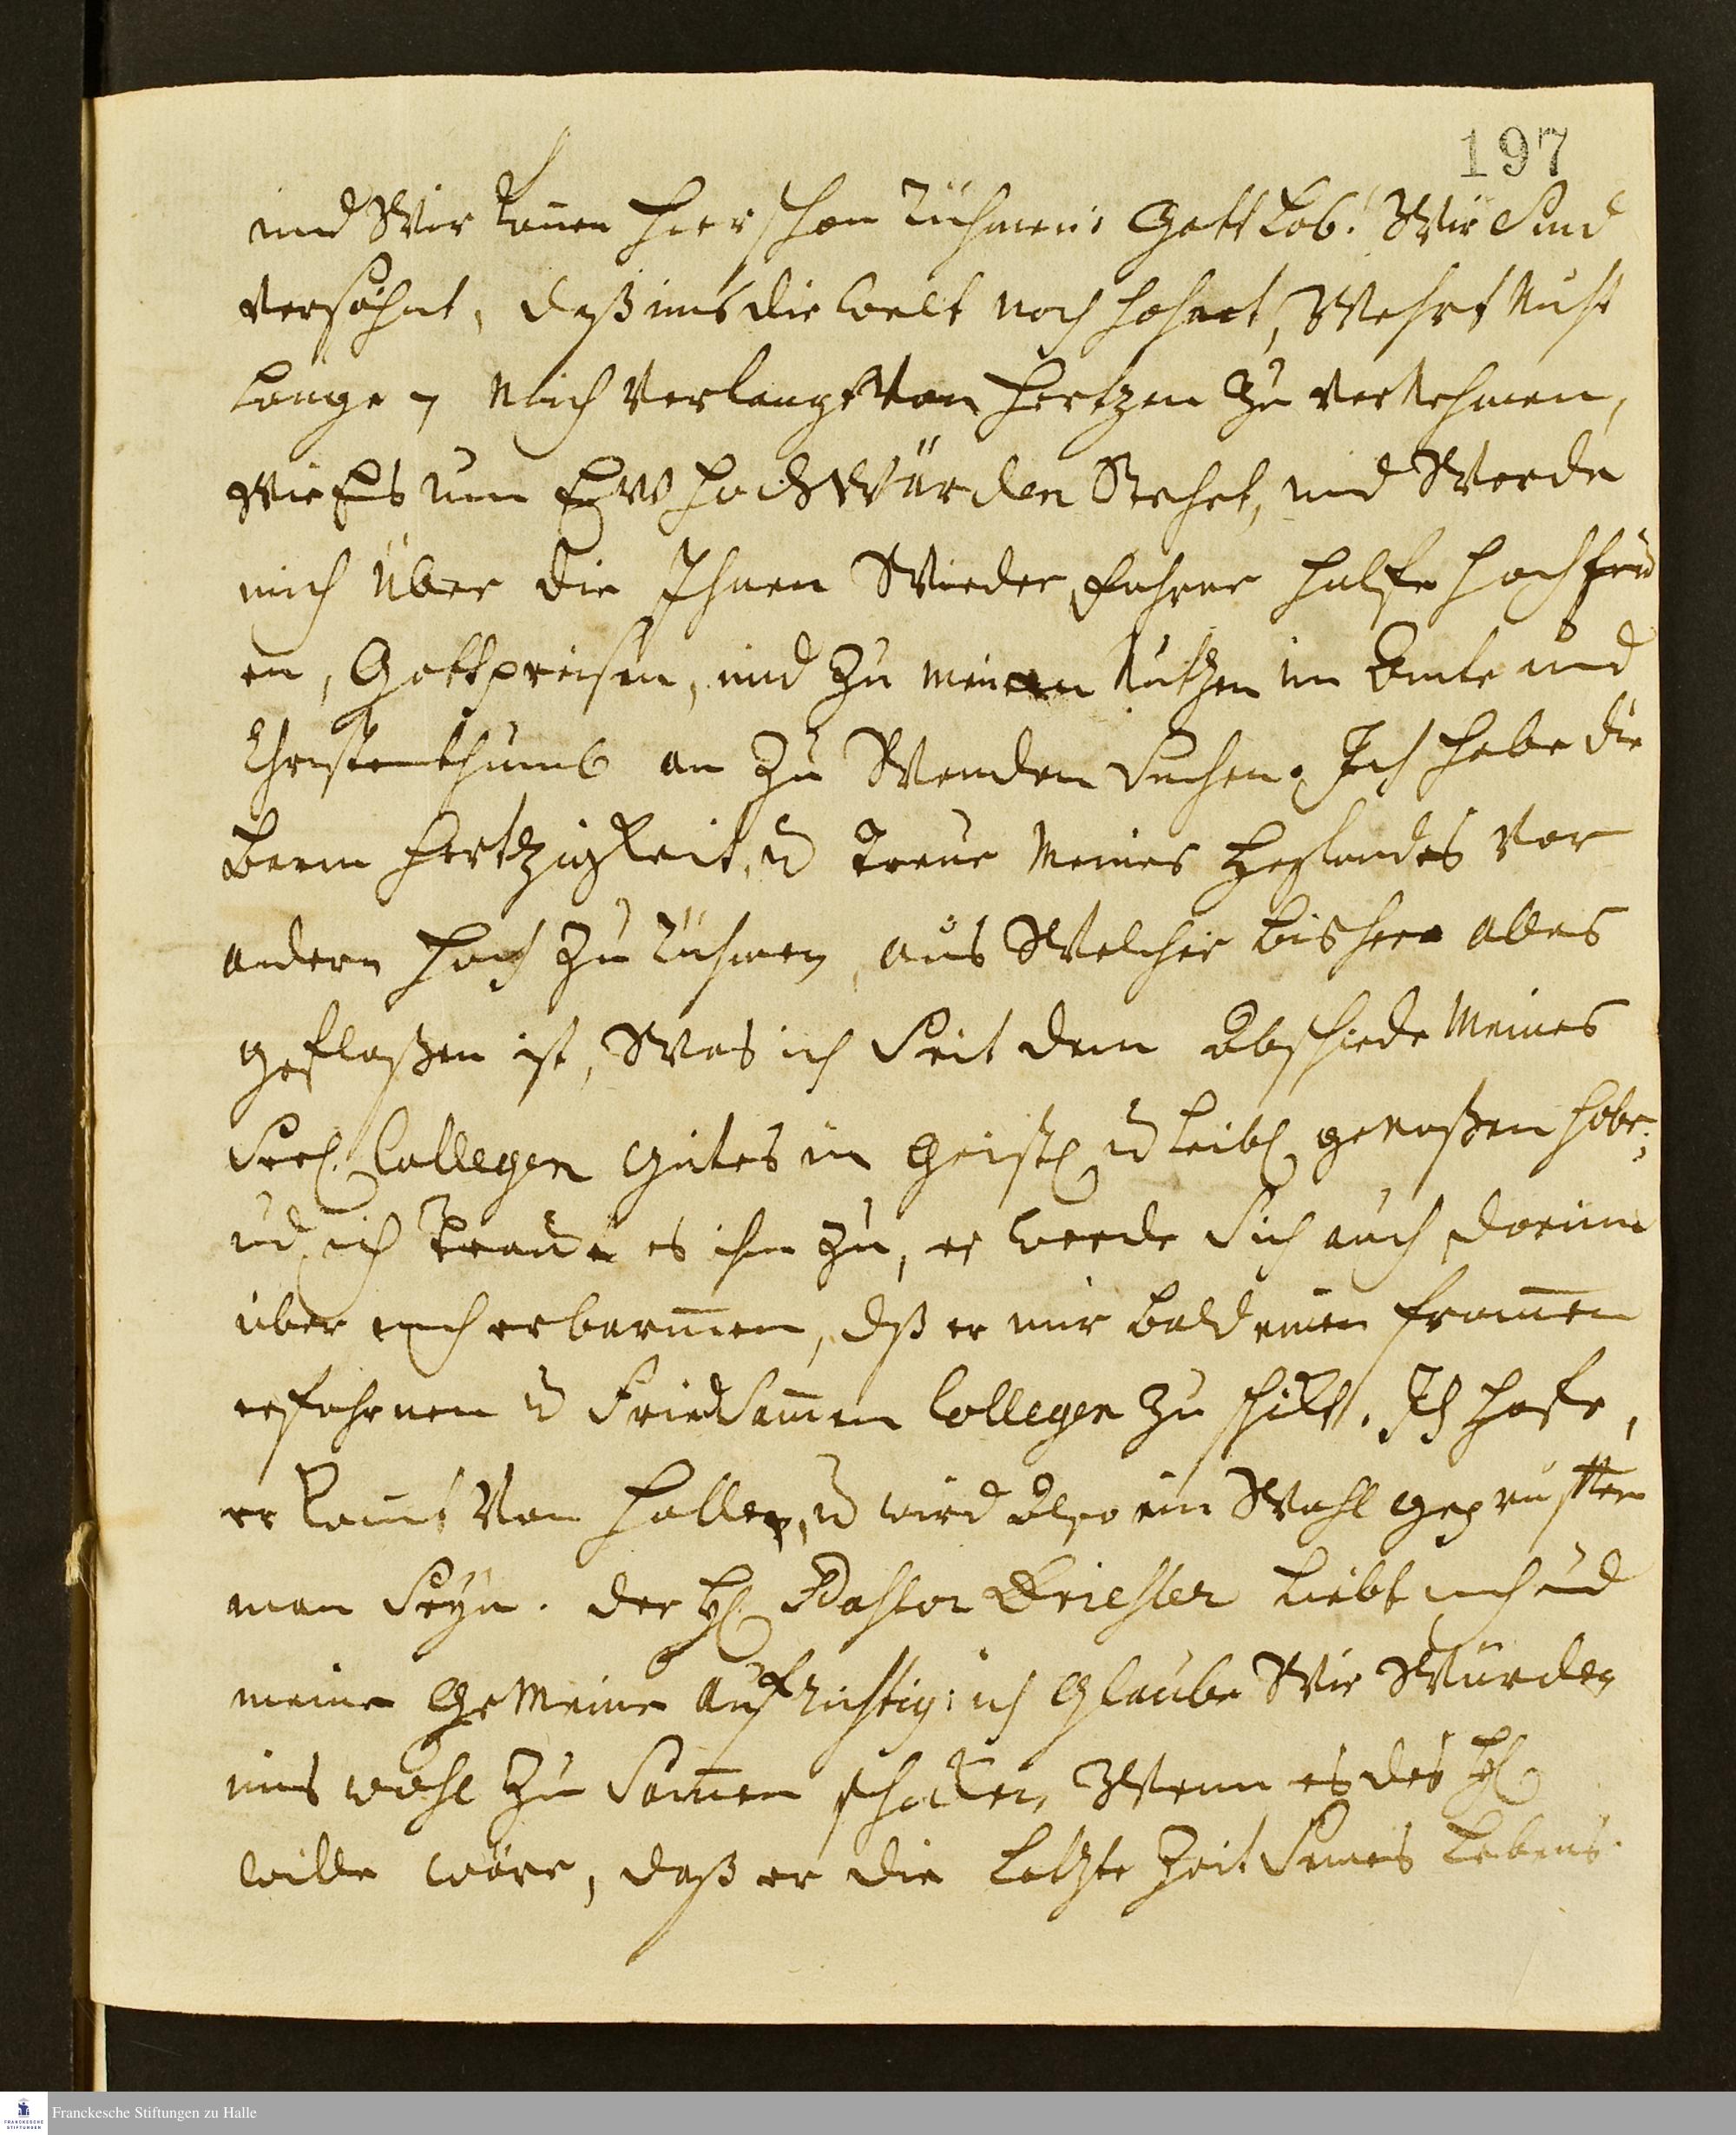 197
und Wir könen hier schon rühmen: Gott Lob! Wir Sind
versöhnt, daß uns die welt noch höhnt, Wehrt Nicht
Lange, Mich Verlangt Von Hertzen zu verNehmen,
Wie Es um Ew HochWürden Stehet, und Werde
mich Über die Ihnen Wiederfahrne Hülfe hoch freu
en, Gott preisen, und zu meinem Nutzen im Amte und
Christenthumb an zu Wenden Suchen. Ich habe die
Barmhertzigkeit, u Treue Meines Heylandes Vor
andern Hoch zu rühmen, aus Welcher bisher alles
gefloßen ist, Was ich Seit dem Abschiede Meines
Seel. Collegen Gutes im Geistl u Leibl genoßen habe;
ud ich traue es ihm zu, er werde Sich auch darinn
über mich erbarmen, dß er mir bald einen fromen
erfahrnen u Friedsamen Collegen zu schikt. Ich Hoffe,
er komt Von Halle, u wird Also ein Wohl geprüfter
man Seyn. der H. Pastor Driesler Liebt mich ud
meine GeMeine Aufrichtig; ich Glaube Wir Würden
uns wohl zu Samen schiken, Wenn es des H
Wille wäre, daß er die Letzte Zeit Seines Lebens
Franckesche Stiftungen zu Halle